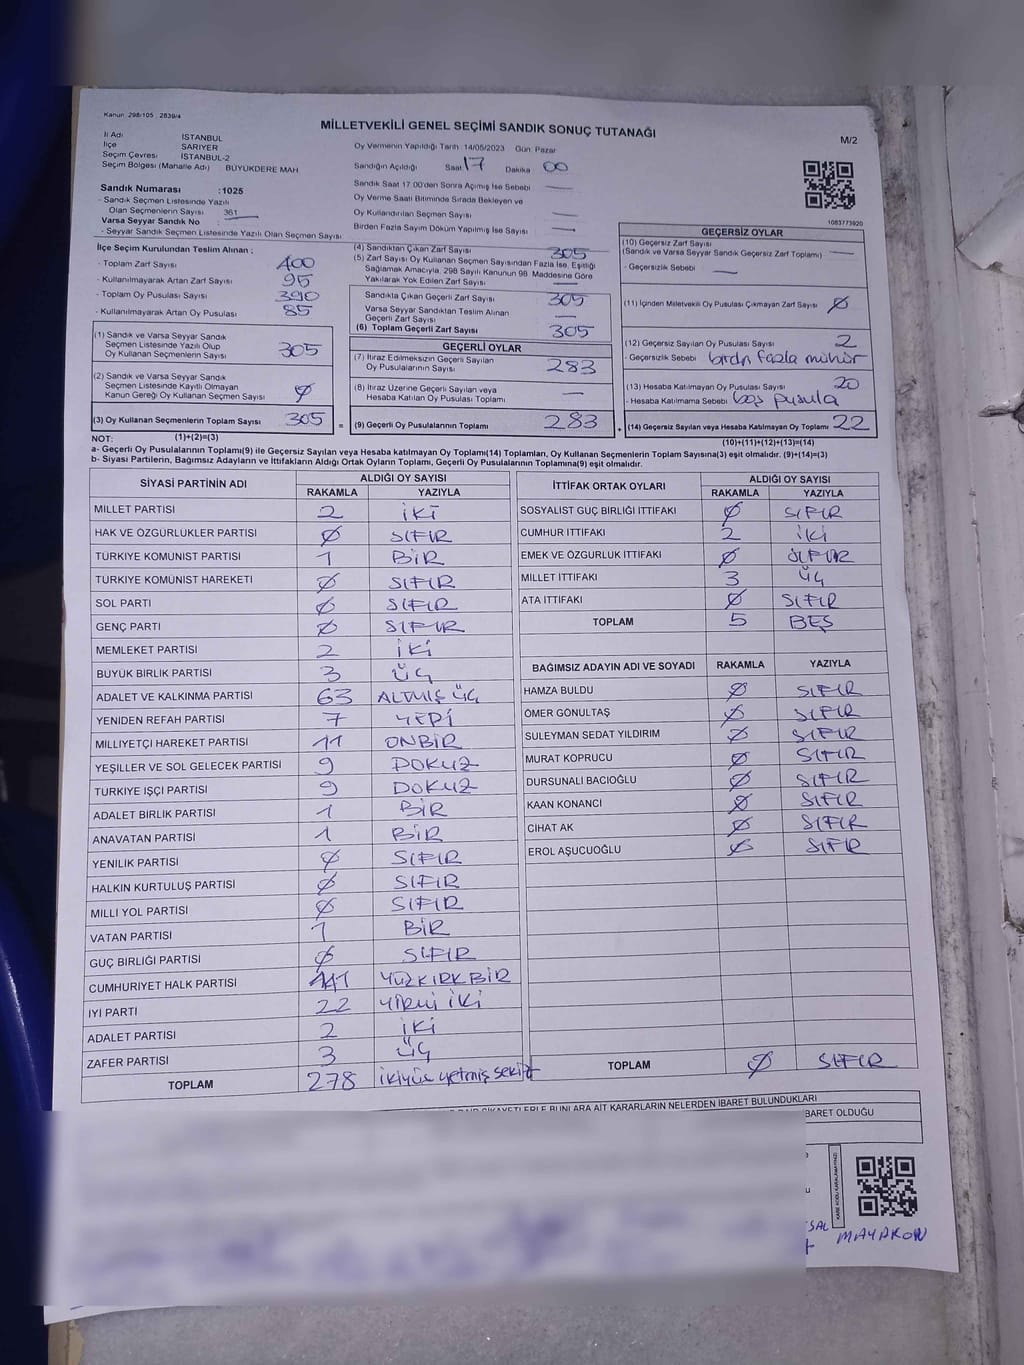 Kanun: 298/105 , 2839/4
MİLLETVEKİLİ GENEL SEÇİMİ SANDIK SONUÇ TUTANAĞI
M/2
İl Adı İSTANBUL
İlçe SARIYER
Seçim Çevresi İSTANBUL-2
Seçim Bölgesi (Mahalle Adı) BÜYÜKDERE MAH
Oy Vermenin Yapıldığı Tarih 14/05/2023 Gün: Pazar
Sandığın Açıldığı Saat 17 Dakika 00
Sandık Saat 17.00'den Sonra Açılmış İse Sebebi —
Oy Verme Saati Bitiminde Sırada Bekleyen ve
Oy Kullandırılan Seçmen Sayısı —
Birden Fazla Sayım Döküm Yapılmış İse Sayısı —
1083773920
Sandık Numarası :1025
- Sandık Seçmen Listesinde Yazılı
Olan Seçmenlerin Sayısı 361
Varsa Seyyar Sandık No
- Seyyar Sandık Seçmen Listesinde Yazılı Olan Seçmen Sayısı
İlçe Seçim Kurulundan Teslim Alınan ;
- Toplam Zarf Sayısı 400
- Kullanılmayarak Artan Zarf Sayısı 95
- Toplam Oy Pusulası Sayısı 390
- Kullanılmayarak Artan Oy Pusulası 85
(1) Sandık ve Varsa Seyyar Sandık
Seçmen Listesinde Yazılı Olup
Oy Kullanan Seçmenlerin Sayısı 305
(2) Sandık ve Varsa Seyyar Sandık
Seçmen Listesinde Kayıtlı Olmayan
Kanun Gereği Oy Kullanan Seçmen Sayısı Ø
(3) Oy Kullanan Seçmenlerin Toplam Sayısı 305
(4) Sandıktan Çıkan Zarf Sayısı 305
(5) Zarf Sayısı Oy Kullanan Seçmen Sayısından Fazla İse, Eşitliği
Sağlamak Amacıyla, 298 Sayılı Kanunun 98. Maddesine Göre
Yakılarak Yok Edilen Zarf Sayısı —
Sandıkta Çıkan Geçerli Zarf Sayısı 305
Varsa Seyyar Sandıktan Teslim Alınan
Geçerli Zarf Sayısı —
(6) Toplam Geçerli Zarf Sayısı 305
GEÇERLİ OYLAR
(7) İtiraz Edilmeksizin Geçerli Sayılan
Oy Pusulalarının Sayısı 283
(8) İtiraz Üzerine Geçerli Sayılan veya
Hesaba Katılan Oy Pusulası Toplamı —
= (9) Geçerli Oy Pusulalarının Toplamı 283
GEÇERSİZ OYLAR
(10) Geçersiz Zarf Sayısı
(Sandık ve Varsa Seyyar Sandık Geçersiz Zarf Toplamı) —
- Geçersizlik Sebebi —
(11) İçinden Milletvekili Oy Pusulası Çıkmayan Zarf Sayısı Ø
(12) Geçersiz Sayılan Oy Pusulası Sayısı 2
- Geçersizlik Sebebi birdn fazla mühür
(13) Hesaba Katılmayan Oy Pusulası Sayısı 20
- Hesaba Katılmama Sebebi boş pusula
+ (14) Geçersiz Sayılan veya Hesaba Katılmayan Oy Toplamı 22
NOT: (1)+(2)=(3)
(10)+(11)+(12)+(13)=(14)
a- Geçerli Oy Pusulalarının Toplamı(9) ile Geçersiz Sayılan veya Hesaba katılmayan Oy Toplamı(14) Toplamları, Oy Kullanan Seçmenlerin Toplam Sayısına(3) eşit olmalıdır. (9)+(14)=(3)
b- Siyasi Partilerin, Bağımsız Adayların ve İttifakların Aldığı Ortak Oyların Toplamı, Geçerli Oy Pusulalarının Toplamına(9) eşit olmalıdır.
SİYASİ PARTİNİN ADI ALDIĞI OY SAYISI
RAKAMLA YAZIYLA
MİLLET PARTİSİ 2 İKİ
HAK VE ÖZGÜRLÜKLER PARTİSİ Ø SIFIR
TÜRKİYE KOMÜNİST PARTİSİ 1 BİR
TÜRKİYE KOMÜNİST HAREKETİ Ø SIFIR
SOL PARTİ Ø SIFIR
GENÇ PARTİ Ø SIFIR
MEMLEKET PARTİSİ 2 İKİ
BÜYÜK BİRLİK PARTİSİ 3 ÜÇ
ADALET VE KALKINMA PARTİSİ 63 ALTMIŞ ÜÇ
YENİDEN REFAH PARTİSİ 7 YEDİ
MİLLİYETÇİ HAREKET PARTİSİ 11 ONBİR
YEŞİLLER VE SOL GELECEK PARTİSİ 9 DOKUZ
TÜRKİYE İŞÇİ PARTİSİ 9 DOKUZ
ADALET BİRLİK PARTİSİ 1 BİR
ANAVATAN PARTİSİ 1 BİR
YENİLİK PARTİSİ Ø SIFIR
HALKIN KURTULUŞ PARTİSİ Ø SIFIR
MİLLİ YOL PARTİSİ Ø SIFIR
VATAN PARTİSİ 1 BİR
GÜÇ BİRLİĞİ PARTİSİ Ø SIFIR
CUMHURİYET HALK PARTİSİ 141 YÜZKIRKBİR
İYİ PARTİ 22 YİRMİ İKİ
ADALET PARTİSİ 2 İKİ
ZAFER PARTİSİ 3 ÜÇ
TOPLAM 278 ikiyüz yetmiş sekiz
İTTİFAK ORTAK OYLARI ALDIĞI OY SAYISI
RAKAMLA YAZIYLA
SOSYALİST GÜÇ BİRLİĞİ İTTİFAKI Ø SIFIR
CUMHUR İTTİFAKI 2 İKİ
EMEK VE ÖZGÜRLÜK İTTİFAKI Ø SIFIR
MİLLET İTTİFAKI 3 ÜÇ
ATA İTTİFAKI Ø SIFIR
TOPLAM 5 BEŞ
BAĞIMSIZ ADAYIN ADI VE SOYADI RAKAMLA YAZIYLA
HAMZA BULDU Ø SIFIR
ÖMER GÖNÜLTAŞ Ø SIFIR
SÜLEYMAN SEDAT YILDIRIM Ø SIFIR
MURAT KÖPRÜCÜ Ø SIFIR
DURSUNALİ BACIOĞLU Ø SIFIR
KAAN KONANCİ Ø SIFIR
CİHAT AK Ø SIFIR
EROL AŞUCUOĞLU Ø SIFIR
TOPLAM Ø SIFIR
ŞİKAYETLERLE BUNLARA AİT KARARLARIN NELERDEN İBARET BULUNDUKLARI
İBARET OLDUĞU
SAL